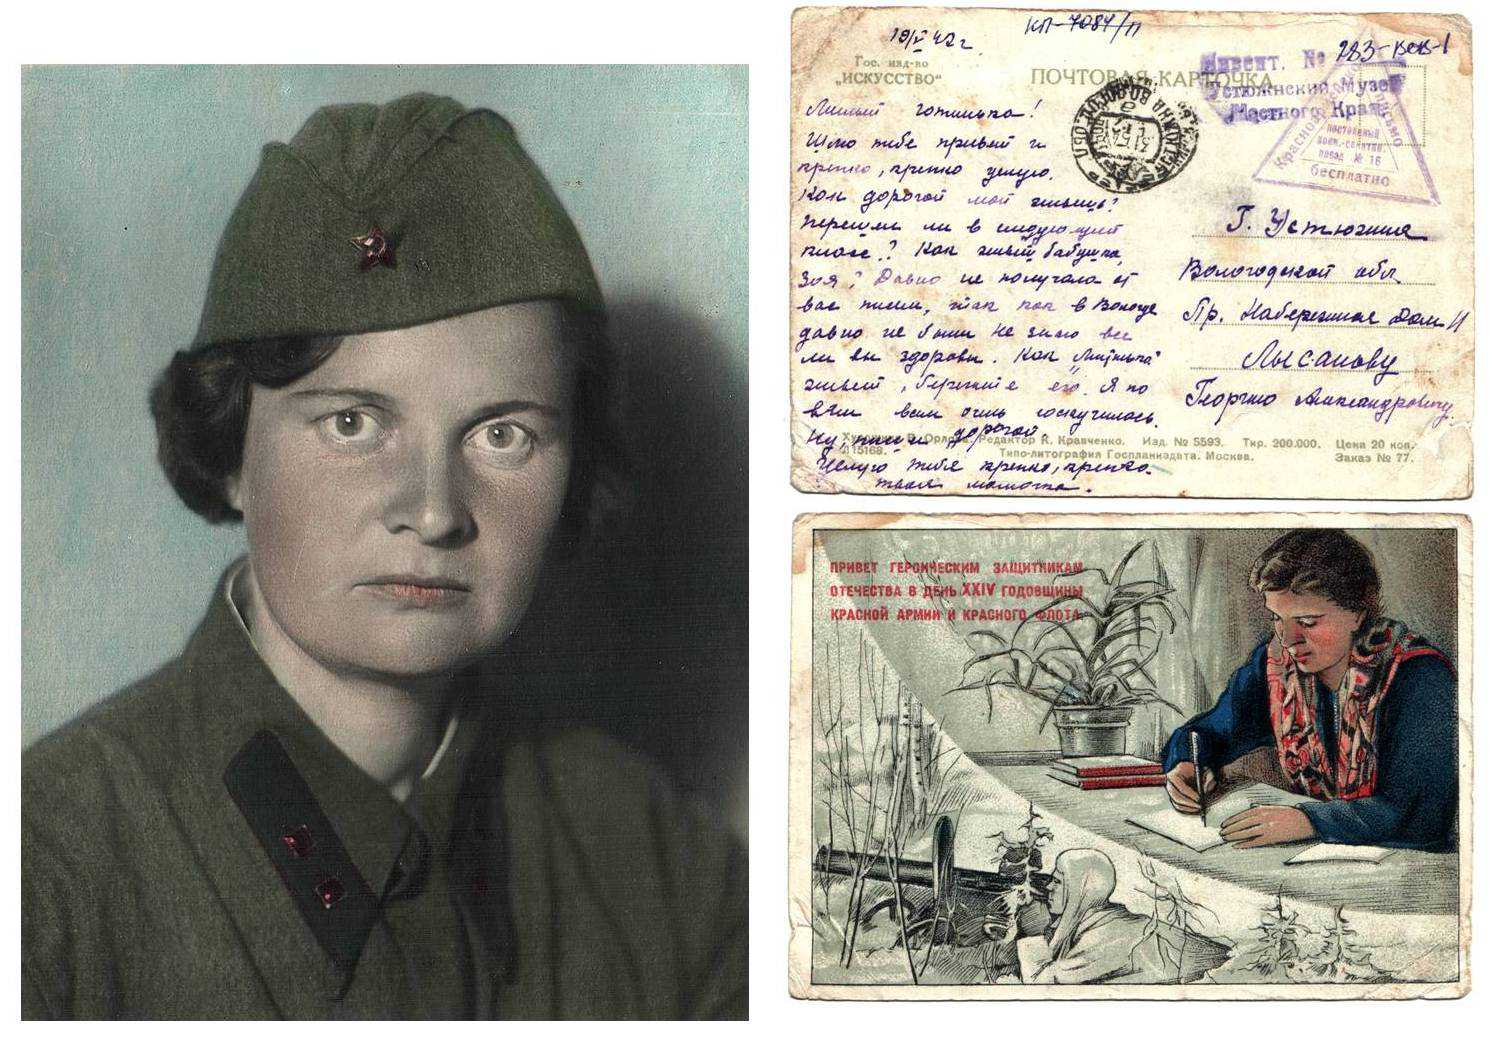 19/V 42 г.
КП-7087/П
283-вев-1
Гос. изд-во
„ИСКУССТВО“
ПОЧТОВАЯ КАРТОЧКА
Инвент. №
Устюженский Музей
Местного Края
Красноармейское письмо
постоянный
воен.-санитн.
поезд № 16
бесплатно
Милый готинька!
Шлю тебе привет и
крепко, крепко целую.
Как дорогой мой живешь?
Перешел ли в следующий
класс? Как живет бабушка,
Зоя? Давно не получала от
вас писем, так как в Вологде
давно не были не знаю все
ли вы здоровы. Как Митинька
живет, берегите его. Я по
вам всем очень соскучилась.
Ну, пиши дорогой
Целую тебя крепко, крепко.
твоя мамочка.
Г. Устюжна
Вологодской обл.
Пр. Набережная Дом 11
Лысанову
Георгию Александровичу.
Орлова. Редактор К. Кравченко. Изд. № 5593. Тир. 200.000. Цена 20 коп.
Л15168. Типо-литография Госпланиздата. Москва. Заказ № 77.
ПРИВЕТ ГЕРОИЧЕСКИМ ЗАЩИТНИКАМ
ОТЕЧЕСТВА В ДЕНЬ XXIV ГОДОВЩИНЫ
КРАСНОЙ АРМИИ И КРАСНОГО ФЛОТА.